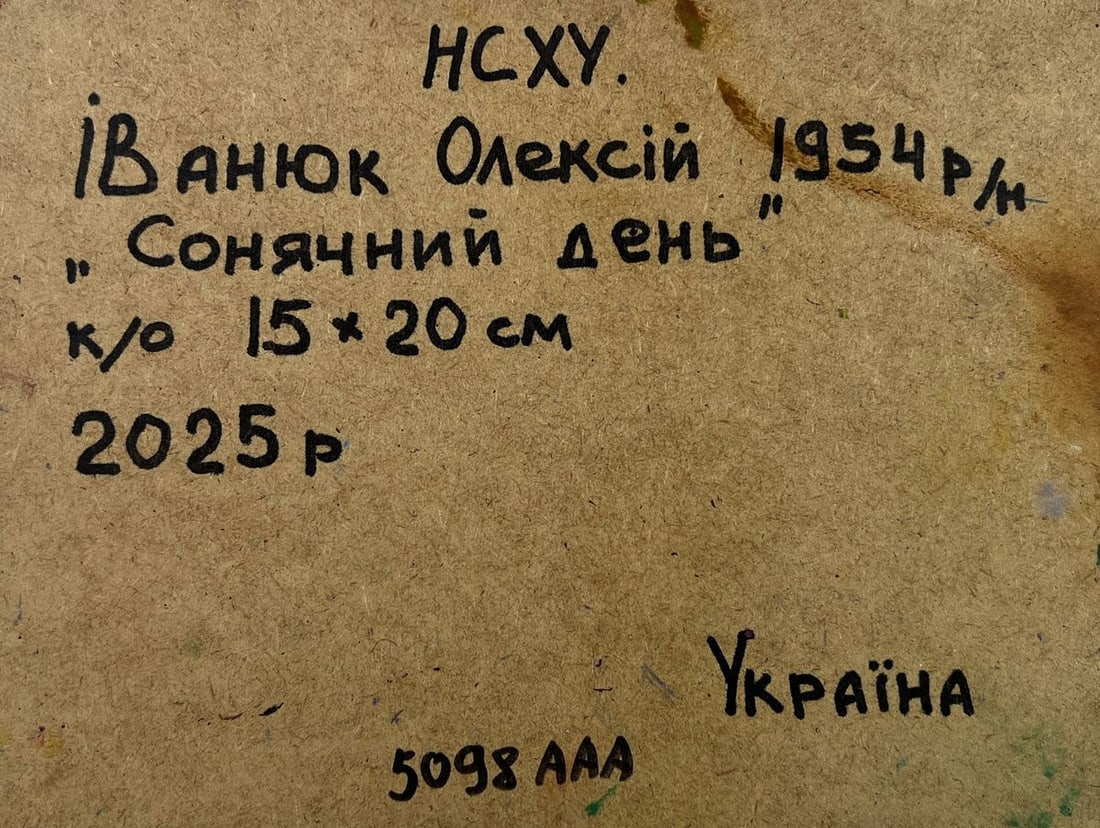 НСХУ.
Іванюк Олексій 1954 р/н
„Сонячний день"
к/о 15 × 20 см
2025 р
Україна
5098 ААА